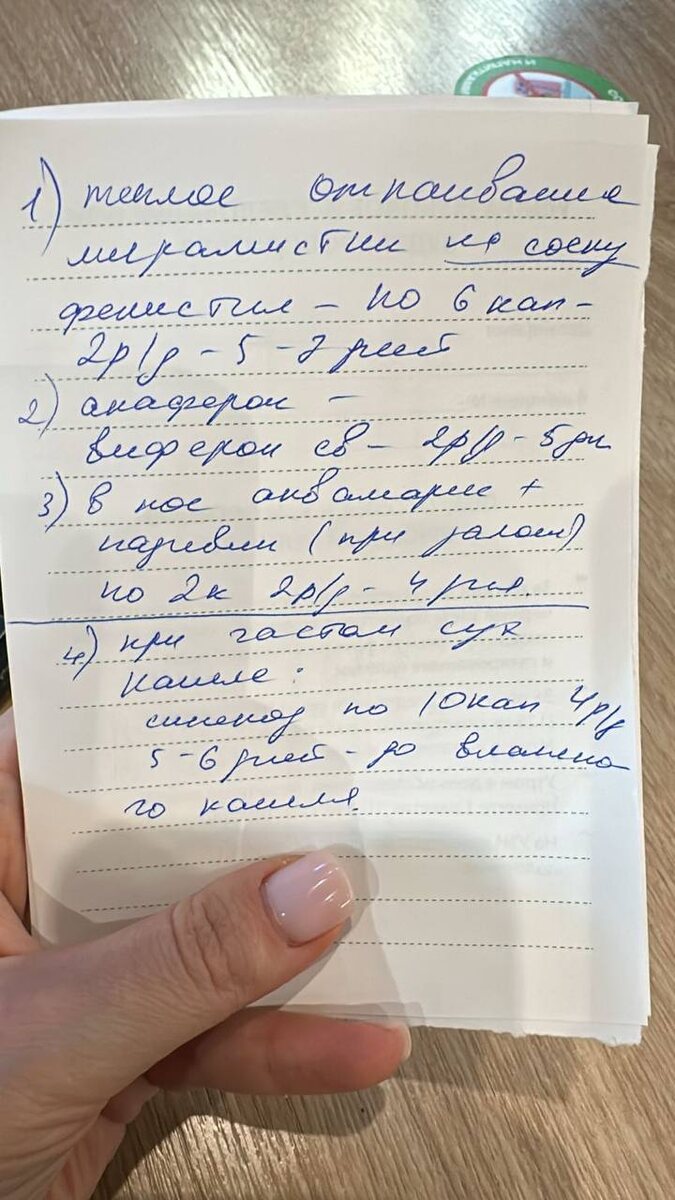 И НАПИТКАМИ
1) теплое отпаивание
мирамистин на соску
фенистил – по 6 кап –
2р/д – 5 – 7 дней
2) анаферон –
виферон св – 2р/д – 5 дн
3) в нос аквамарис +
називин (при залож)
по 2к 2р/д – 4 дня.
4) при частом сух
кашле:
синекод по 10 кап 4р/д
5 – 6 дней – до влажно
го кашля.